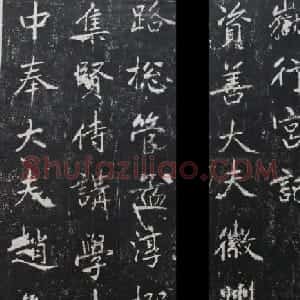 嶽行宮記
資善大夫徽
路総管孟淳
集賢侍講學
中奉大夫趙
Shufaziliao.com